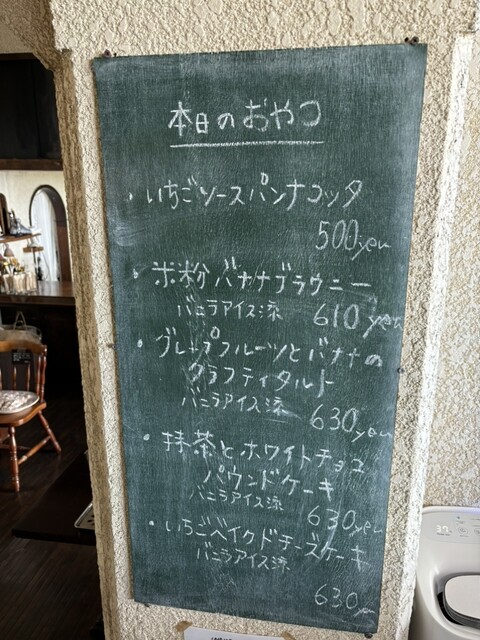 本日のおやつ
・いちごソースパンナコッタ
500yen
・米粉バナナブラウニー
バニラアイス添 610yen
・グレープフルーツとバナナの
クラフティタルト
バニラアイス添 630yen
・抹茶とホワイトチョコ
パウンドケーキ
バニラアイス添 630yen
・いちごベイクドチーズケーキ
バニラアイス添
630yen